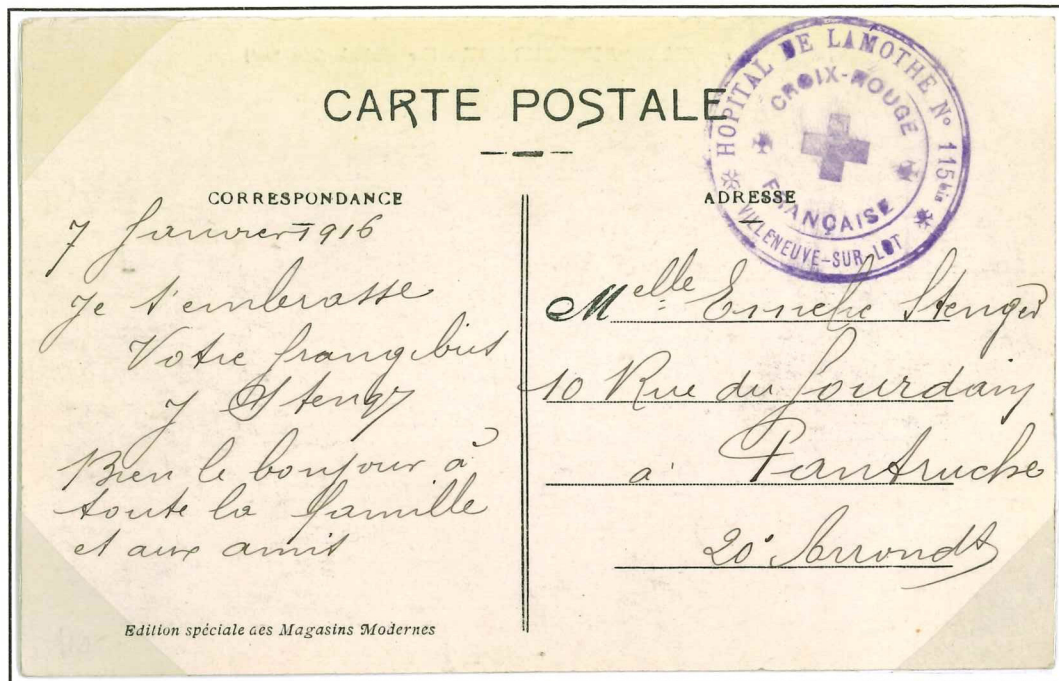 CARTE POSTALE
HOPITAL DE LAMOTHE Nº 115bis
VILLENEUVE-SUR-LOT
CROIX-ROUGE
FRANÇAISE
CORRESPONDANCE
7 Janvier 1916
Je t'embrasse
Votre frangibus
J Stenger
Bien le bonjour à
toute la famille
et aux amis
Edition spéciale des Magasins Modernes
ADRESSE
Melle Stenger
10 Rue du Jourdain
à Pantruche
20e Arrondt